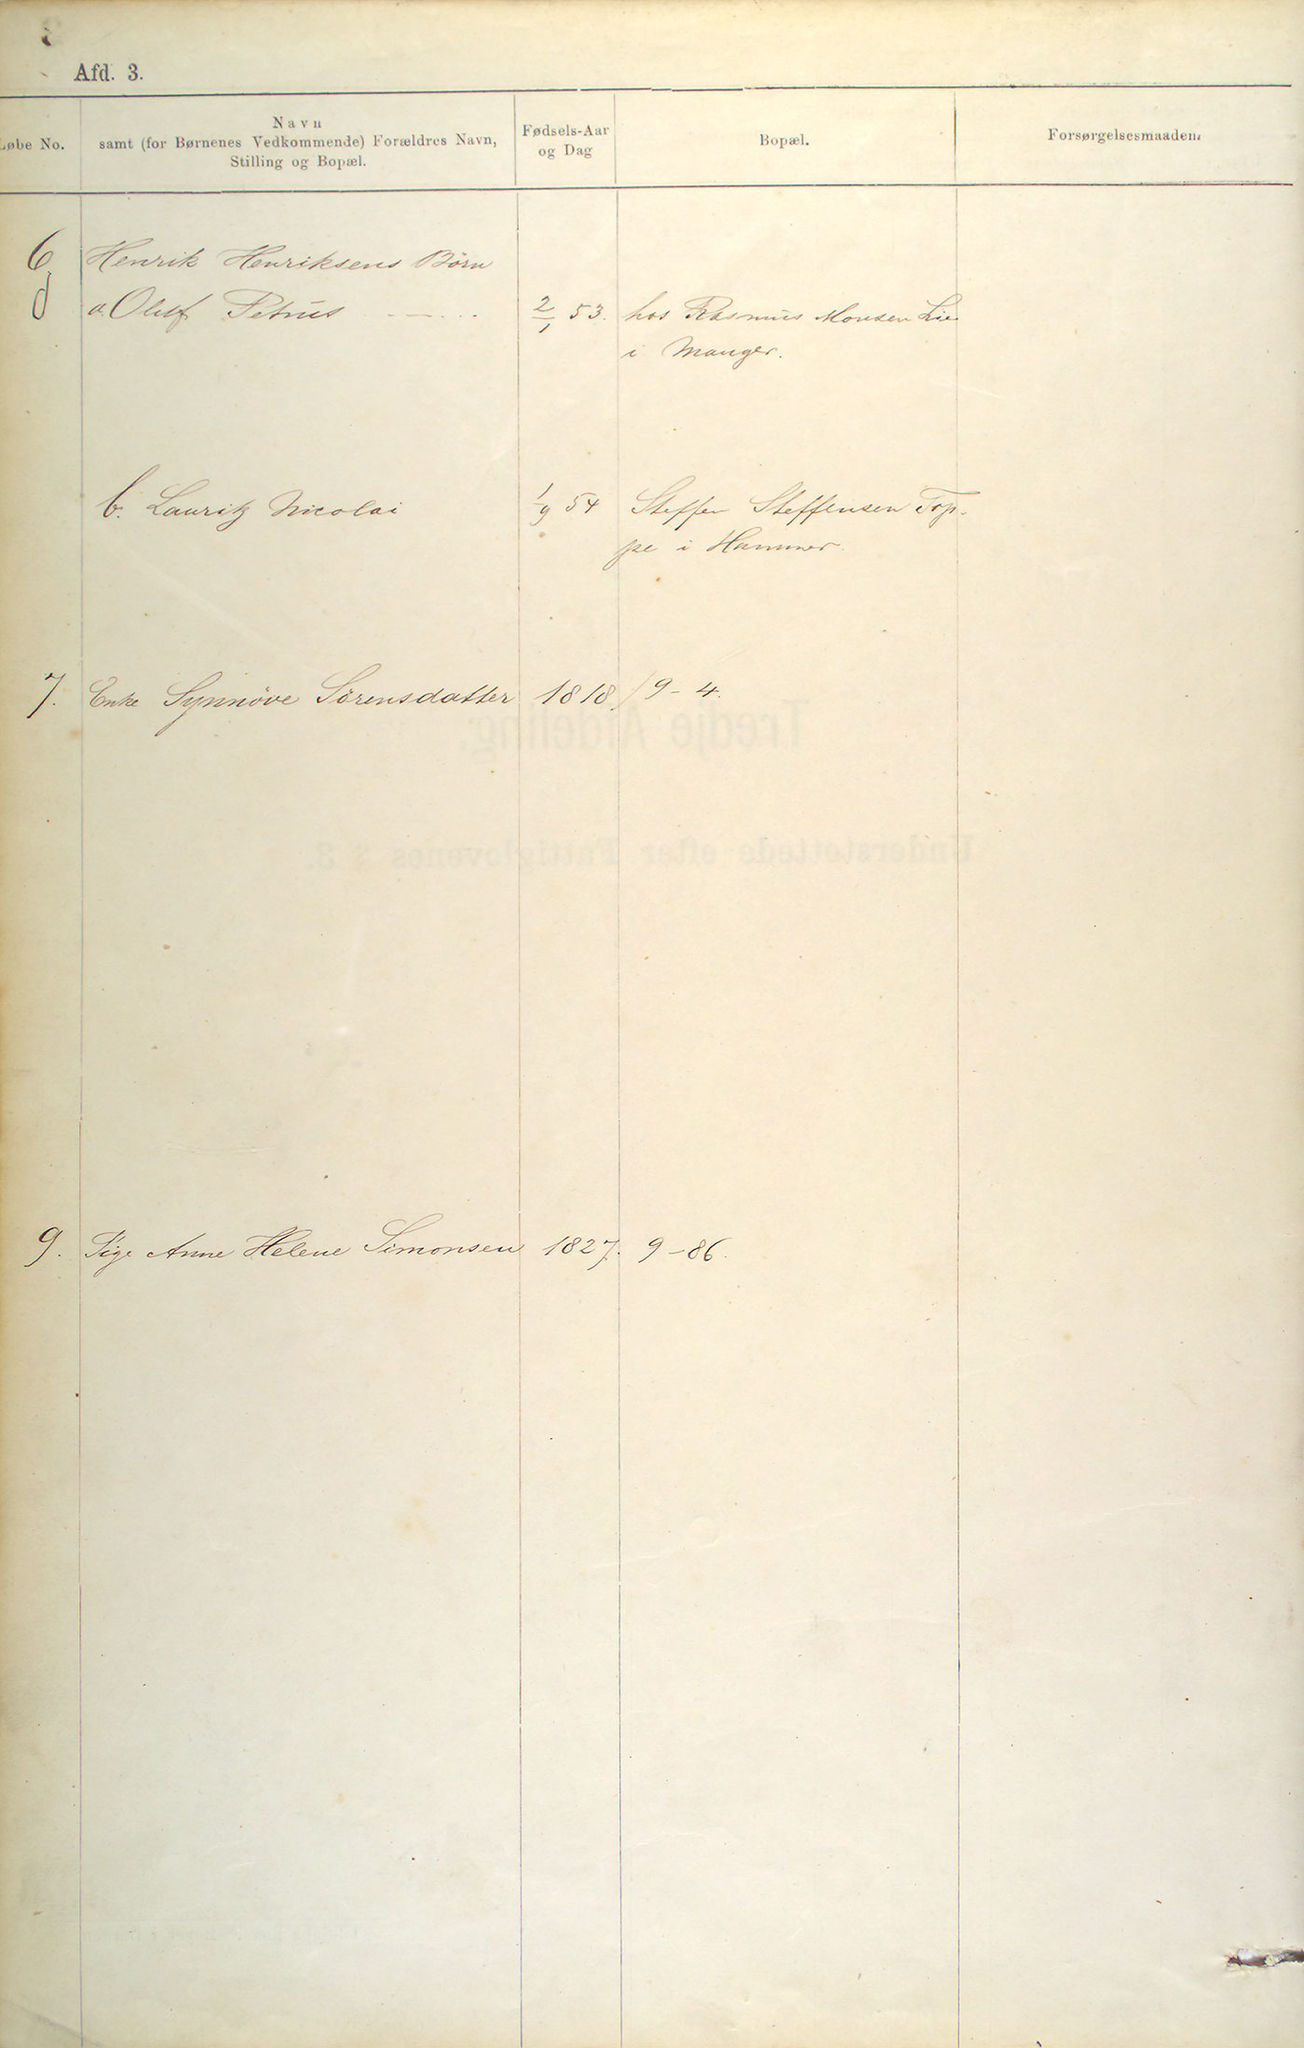 Afd. 3.
Løbe No.
Navn
samt (for Børnenes Vedkommende) Forældres Navn,
Stilling og Bopæl.
Fødsels-Aar
og Dag
Bopæl.
Forsørgelsesmaaden.
6. Henrik Henriksens Børn
a. Oluf Petrus 2/1 53. hos Rasmus Monsen Lie
i Manger.
b. Lauritz Nicolai 1/9 54 Steffen Steffensen Top-
pe i Hammer.
7. Enke Synnöve Sörensdatter 1818. 9-4.
9. Pige Anne Helene Simonsen 1827. 9-86.